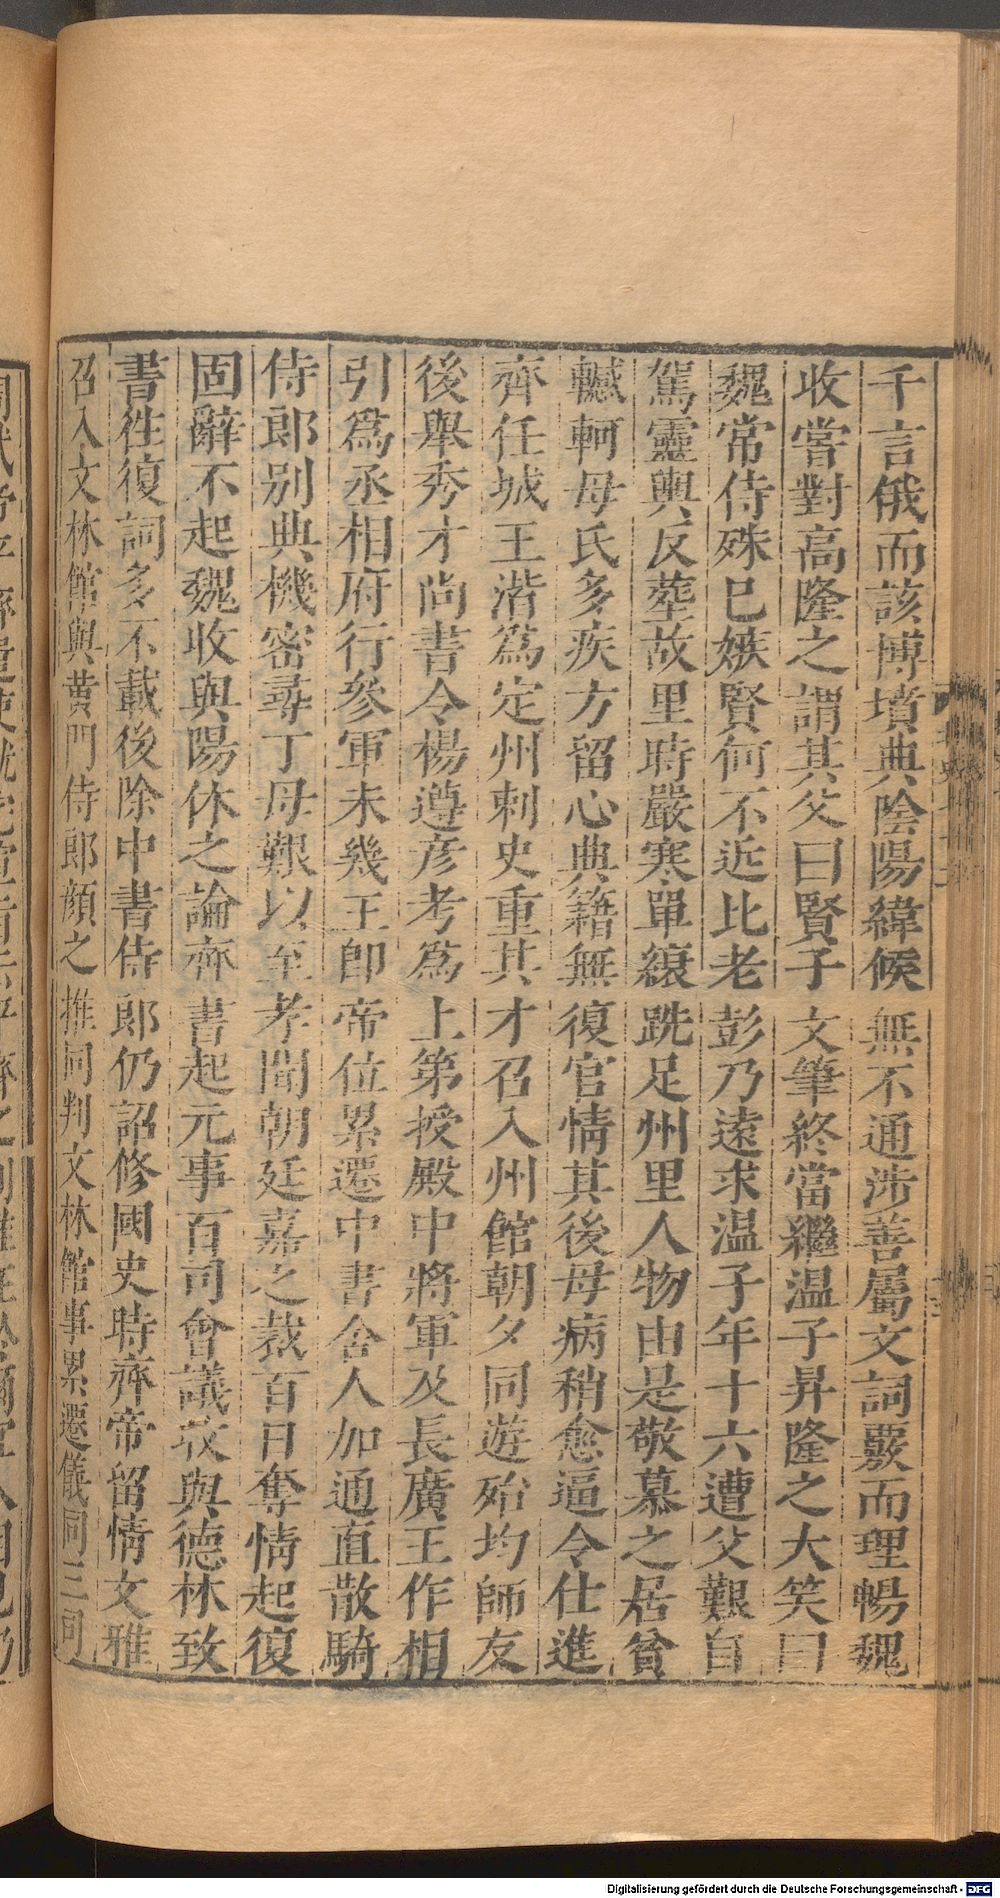 千言俄而該博墳典陰陽緯候無不通涉善屬文詞覈而理暢魏
收嘗對高隆之謂其父曰賢子文筆終當繼温子昇隆之大笑曰
魏常侍殊已嫉賢何不近比老彭乃遠求温子年十六遭父艱自
駕靈輿反葬故里時嚴寒單縗跣足州里人物由是敬慕之居貧
轗軻母氏多疾方留心典籍無復官情其後母病稍愈逼令仕進
齊任城王湝為定州刺史重其才召入州館朝夕同遊殆均師友
後舉秀才尚書令楊遵彥考為上第授殿中將軍及長廣王作相
引爲丞相府行參軍未幾王即帝位累遷中書舍人加通直散騎
侍郎别典機密尋丁母艱以至孝聞朝廷嘉之裁百日奪情起復
固辭不起魏收與陽休之論齊書起元事百司會議收與德林致
書徃復詞多不載後除中書侍郎仍詔修國史時齊帝留情文雅
召入文林館與黄門侍郎顏之推同判文林館事累遷儀同三司
Digitalisierung gefördert durch die Deutsche Forschungsgemeinschaft - DFG